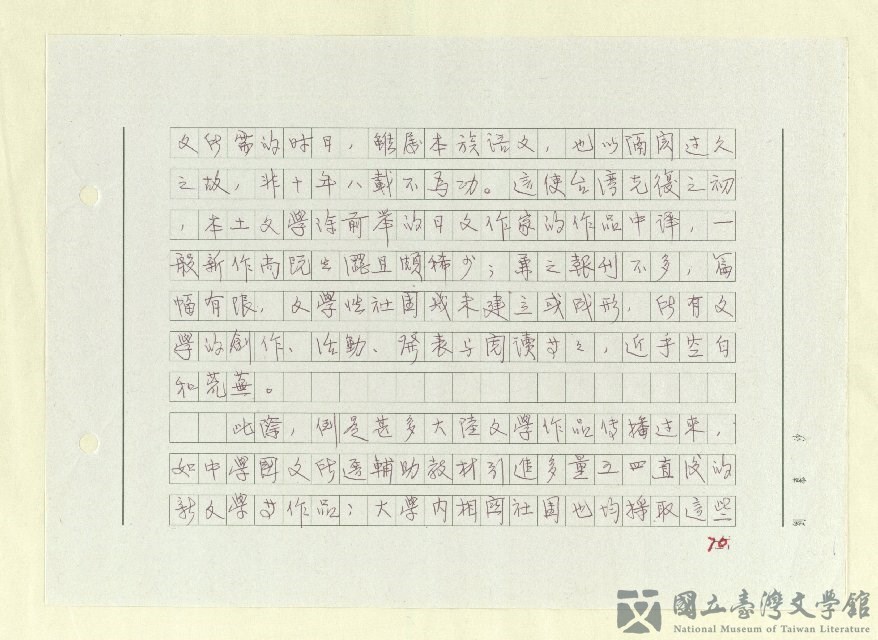 文所需的时日，雖屬本族语文，也以隔閡过久
之故，非十年八載不為功。這使台湾光復之初
，本土文學除前举的日文作家的作品中译，一
般新作尚既生澀且頗稀少；兼之報刊不多，篇
幅有限，文學性社団或未建立或成形，所有文
學的創作、活動、發表与阅读等等，近乎空白
和荒蕪。
此際，倒是甚多大陸文學作品传播过来，
如中學國文所選輔助教材引進多量五四直後的
新文學等作品；大學内相関社団也均採取這些
76.
國立臺灣文學館
National Museum of Taiwan Literature